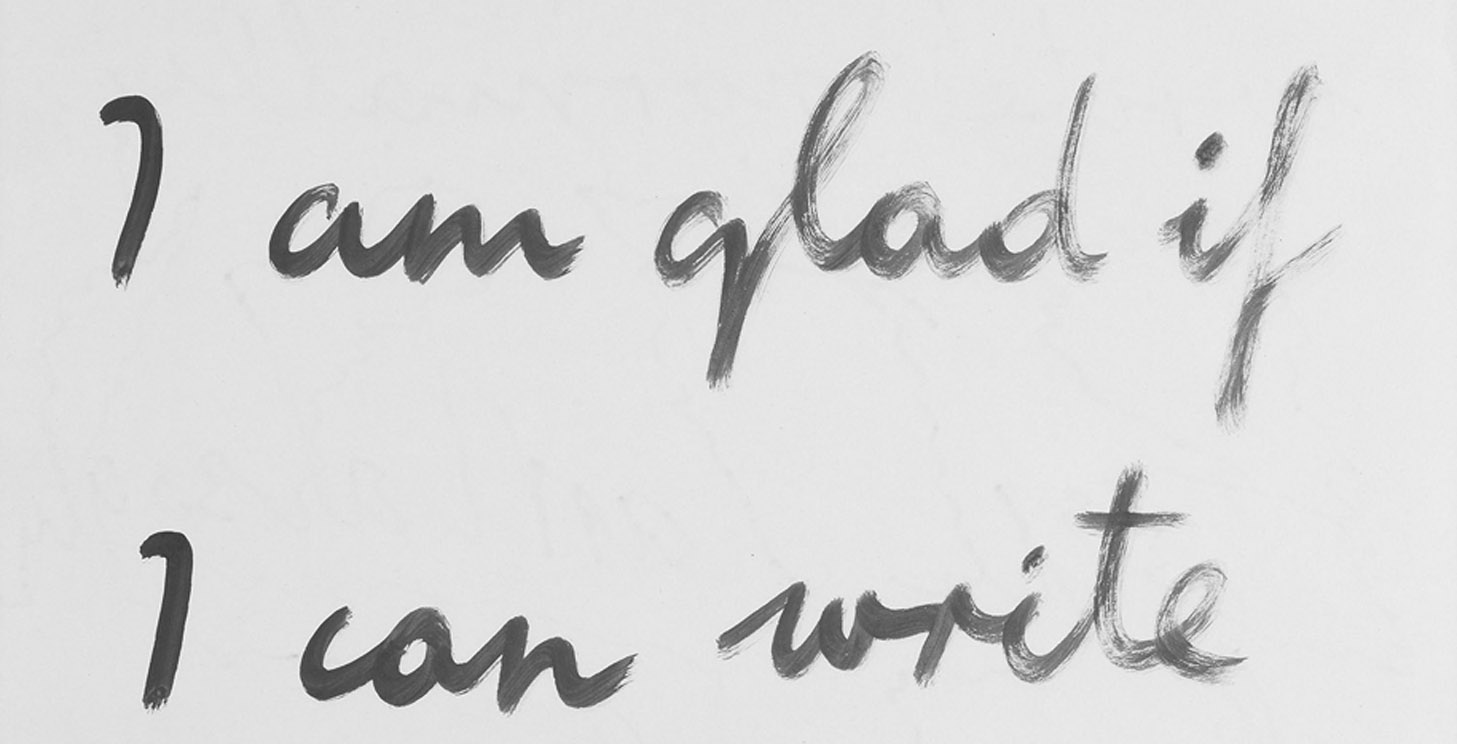 I am glad if
I can write